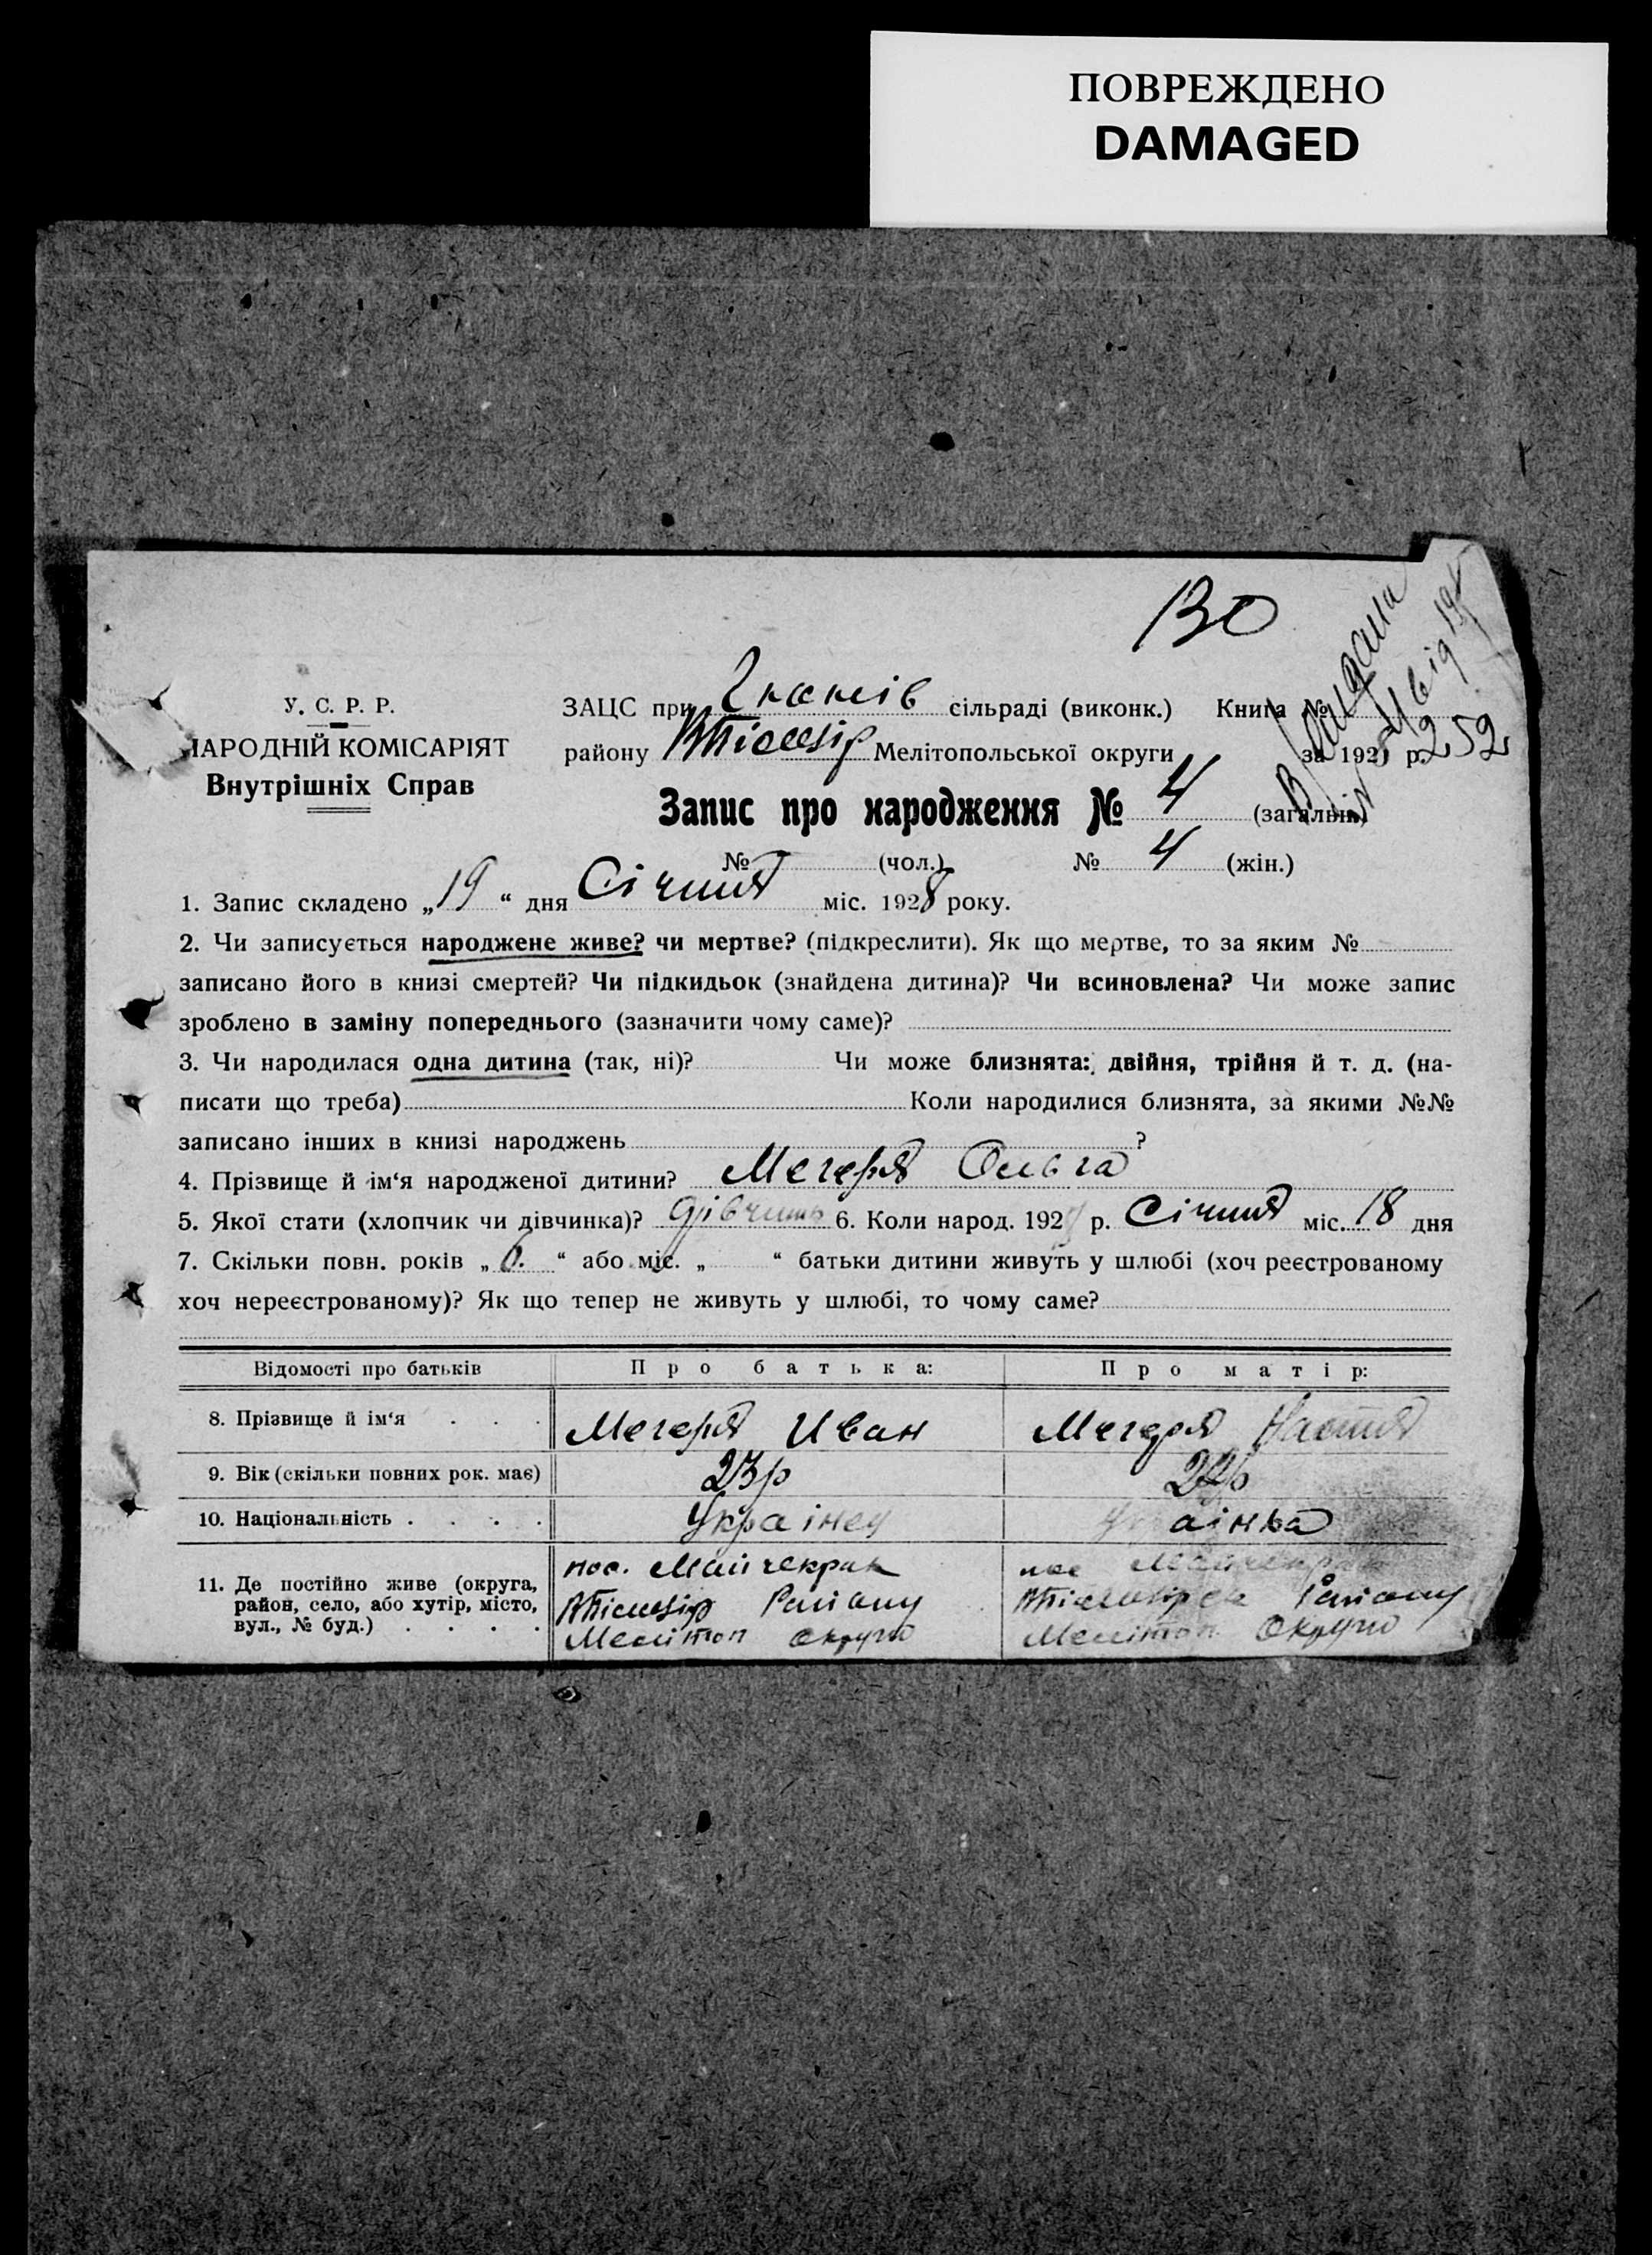 ПОВРЕЖДЕНО
DAMAGED
130
У. С. Р. Р.
НАРОДНІЙ КОМІСАРІЯТ
Внутрішніх Справ
ЗАЦС при сільраді (виконк.) Книга №
району Мелітопольської округи за 192 р. 252
Запис про народження № 4 (загальн.)
№ (чол.) № 4 (жін.)
1. Запис складено „19“ дня Січня міс. 1928 року.
2. Чи записується народжене живе? чи мертве? (підкреслити). Як що мертве, то за яким №
записано його в книзі смертей? Чи підкидьок (знайдена дитина)? Чи всиновлена? Чи може запис
зроблено в заміну попереднього (зазначити чому саме)?
3. Чи народилася одна дитина (так, ні)? Чи може близнята: двійня, трійня й т. д. (на-
писати що треба) Коли народилися близнята, за якими №№
записано інших в книзі народжень ?
4. Прізвище й ім‘я народженої дитини? Мегеря Ольга
5. Якої стати (хлопчик чи дівчинка)? 6. Коли народ. 192 р. Січня міс. 18 дня
7. Скільки повн. років „6.“ або міс. „ “ батьки дитини живуть у шлюбі (хоч реєстрованому
хоч нереєстрованому)? Як що тепер не живуть у шлюбі, то чому саме?
Відомості про батьків Про батька: Про матір:
8. Прізвище й ім‘я . . . Мегеря Иван Мегеря Настя
9. Вік (скільки повних рок. має) 23р
10. Національність . . . . Українец аінка
11. Де постійно живе (округа, пос.
район, село, або хутір, місто, Раіону Раіону
вул., № буд.) . . . . Мелітоп Округи Мелітоп Округи